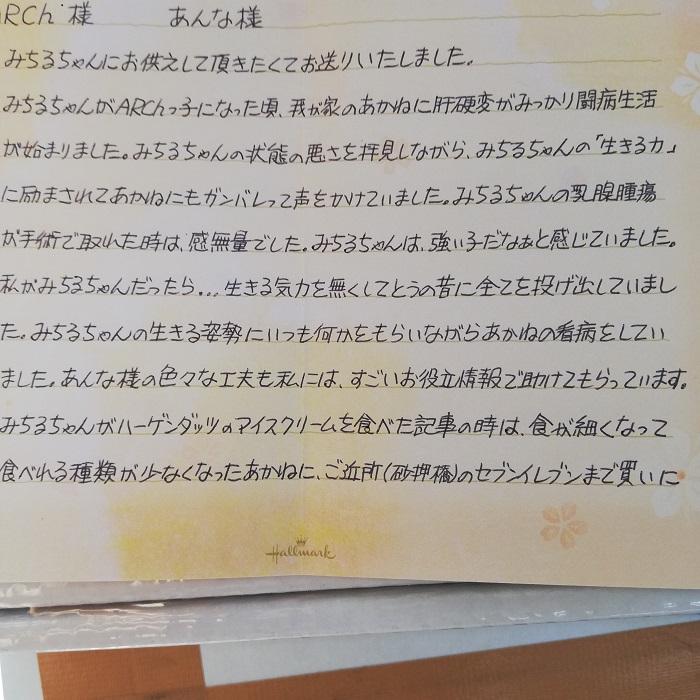 ARCh 様 あんな様
みちるちゃんにお供えして頂きたくてお送りいたしました。
みちるちゃんがARChっ子になった頃、我が家のあかねに肝硬変がみつかり闘病生活
が始まりました。みちるちゃんの状態の悪さを拝見しながら、みちるちゃんの「生きる力」
に励まされてあかねにもガンバレって声をかけていました。みちるちゃんの乳腺腫瘍
が手術で取れた時は、感無量でした。みちるちゃんは、強い子だなぁと感じていました。
私がみちるちゃんだったら...生きる気力を無くしてとうの昔に全てを投げ出していまし
た。みちるちゃんの生きる姿勢にいつも何かをもらいながらあかねの看病をしてい
ました。あんな様の色々な工夫も私には、すごいお役立情報で助けてもらっています。
みちるちゃんがハーゲンダッツのアイスクリームを食べた記事の時は、食が細くなって
食べれる種類が少なくなったあかねに、ご近所(砂押橋)のセブンイレブンまで買いに
Hallmark